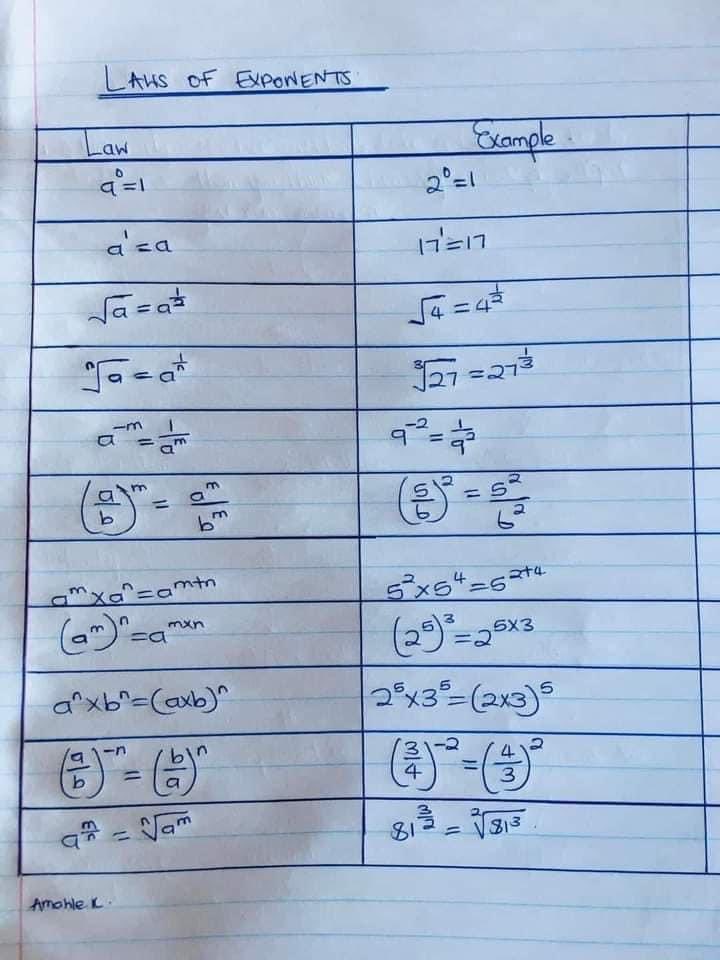 LAWS OF EXPONENTS
Law Example.
a⁰=1 2⁰=1
a¹=a 17¹=17
√a = a^(1/2) √4 = 4^(1/2)
ⁿ√a = a^(1/n) ³√27 = 27^(1/3)
a⁻ᵐ = 1/aᵐ 9⁻² = 1/9²
(a/b)ᵐ = aᵐ/bᵐ (5/6)² = 5²/6²
aᵐ×aⁿ=aᵐ⁺ⁿ 5²×5⁴=5²⁺⁴
(aᵐ)ⁿ=aᵐˣⁿ (2⁵)³=2⁵ˣ³
aⁿ×bⁿ=(a×b)ⁿ 2⁵×3⁵=(2×3)⁵
(a/b)⁻ⁿ = (b/a)ⁿ (3/4)⁻² = (4/3)²
a^(m/n) = ⁿ√aᵐ 81^(3/2) = ²√81³.
Amohle K.